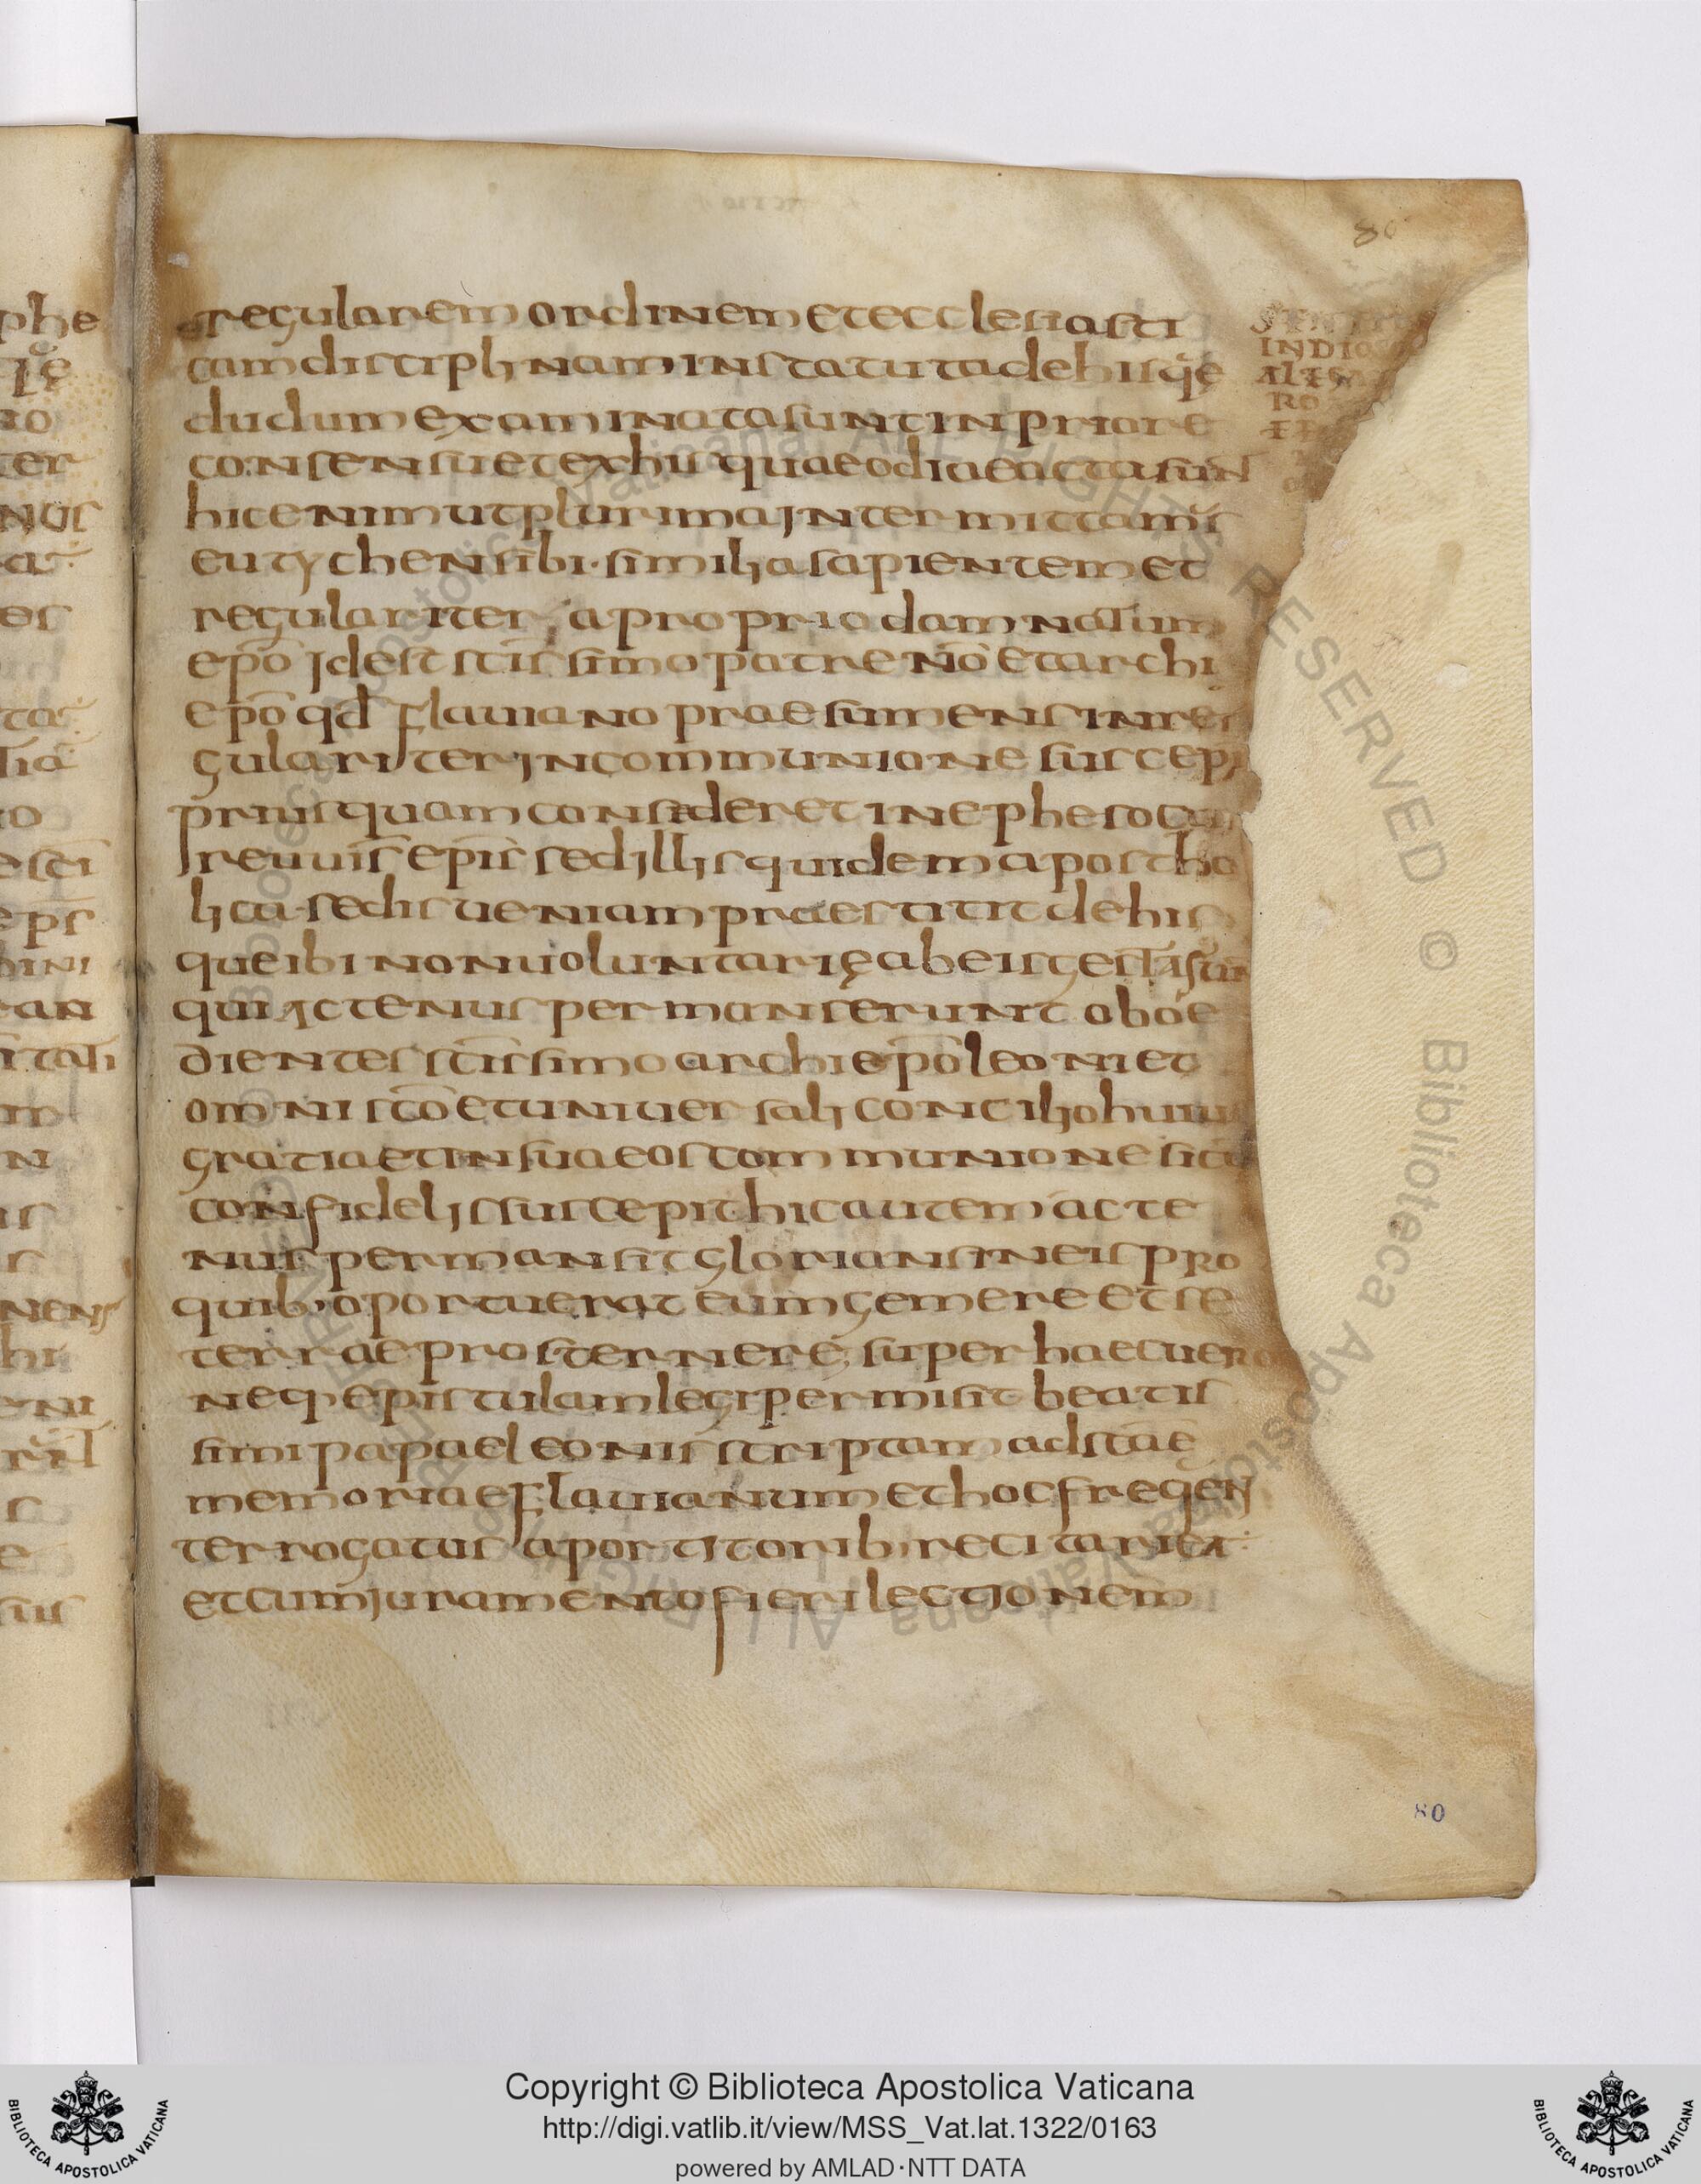 regularem ordinem et ecclesiasti
cam disciplinam instatuta de his qę
dudum examinata sunt in priore
consensu et ex his quae odiae acta sun
hic enim ut plurima intermittam̄s
eutychen sibi · similia sapientem et
regulariter, a proprio damnatum
epō idest sc̄issimo patre nō et archi
epō qd̄ flauiano praesumens inre
gulariter in communione suscepi
priusquam consederet in epheso cu
reuuis̄ epīs sed illis quidem apostho
lica sedis ueniam praestitit de his
que ibi non uoluntarię ab eis gesta sun
qui actenus permanserunt oboe
dientes sc̄issimo archiepō leoni et
omni scō et uniuersali concilio huius
gratia et in sua eos communione sicu
confidelis suscepit hic autem acte
nus permansit glorians in eis pro
quib; oportuerat eum gemere et se
terrae prosternere; super haec uero
neq; epistulam legi permisit beatis
simi papae leonis scriptam ad scāe
memoriae flauianum et hoc freqen
ter rogatus a portitorib; recitari ea
et cum iuramento fieri lectionem
INDIO
RO
80
80
Copyright © Biblioteca Apostolica Vaticana
http://digi.vatlib.it/view/MSS_Vat.lat.1322/0163
powered by AMLAD·NTT DATA
BIBLIOTECA APOSTOLICA VATICANA
BIBLIOTECA APOSTOLICA VATICANA